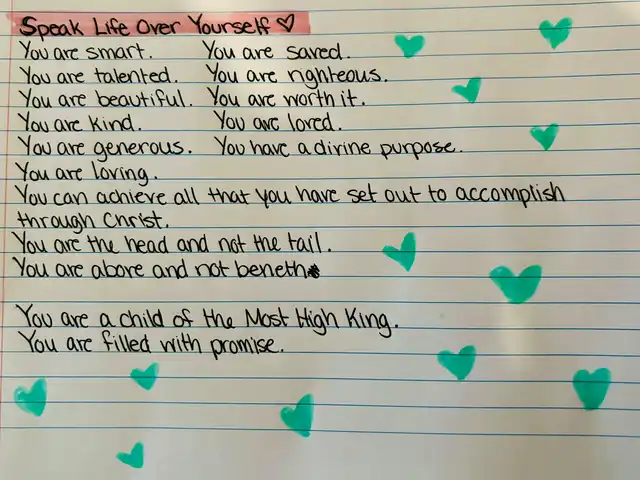 Speak Life Over Yourself ♡
You are smart. You are saved.
You are talented. You are righteous.
You are beautiful. You are worth it.
You are kind. You are loved.
You are generous. You have a divine purpose.
You are loving.
You can achieve all that you have set out to accomplish
through Christ.
You are the head and not the tail.
You are above and not beneth
You are a child of the Most High King.
You are filled with promise.